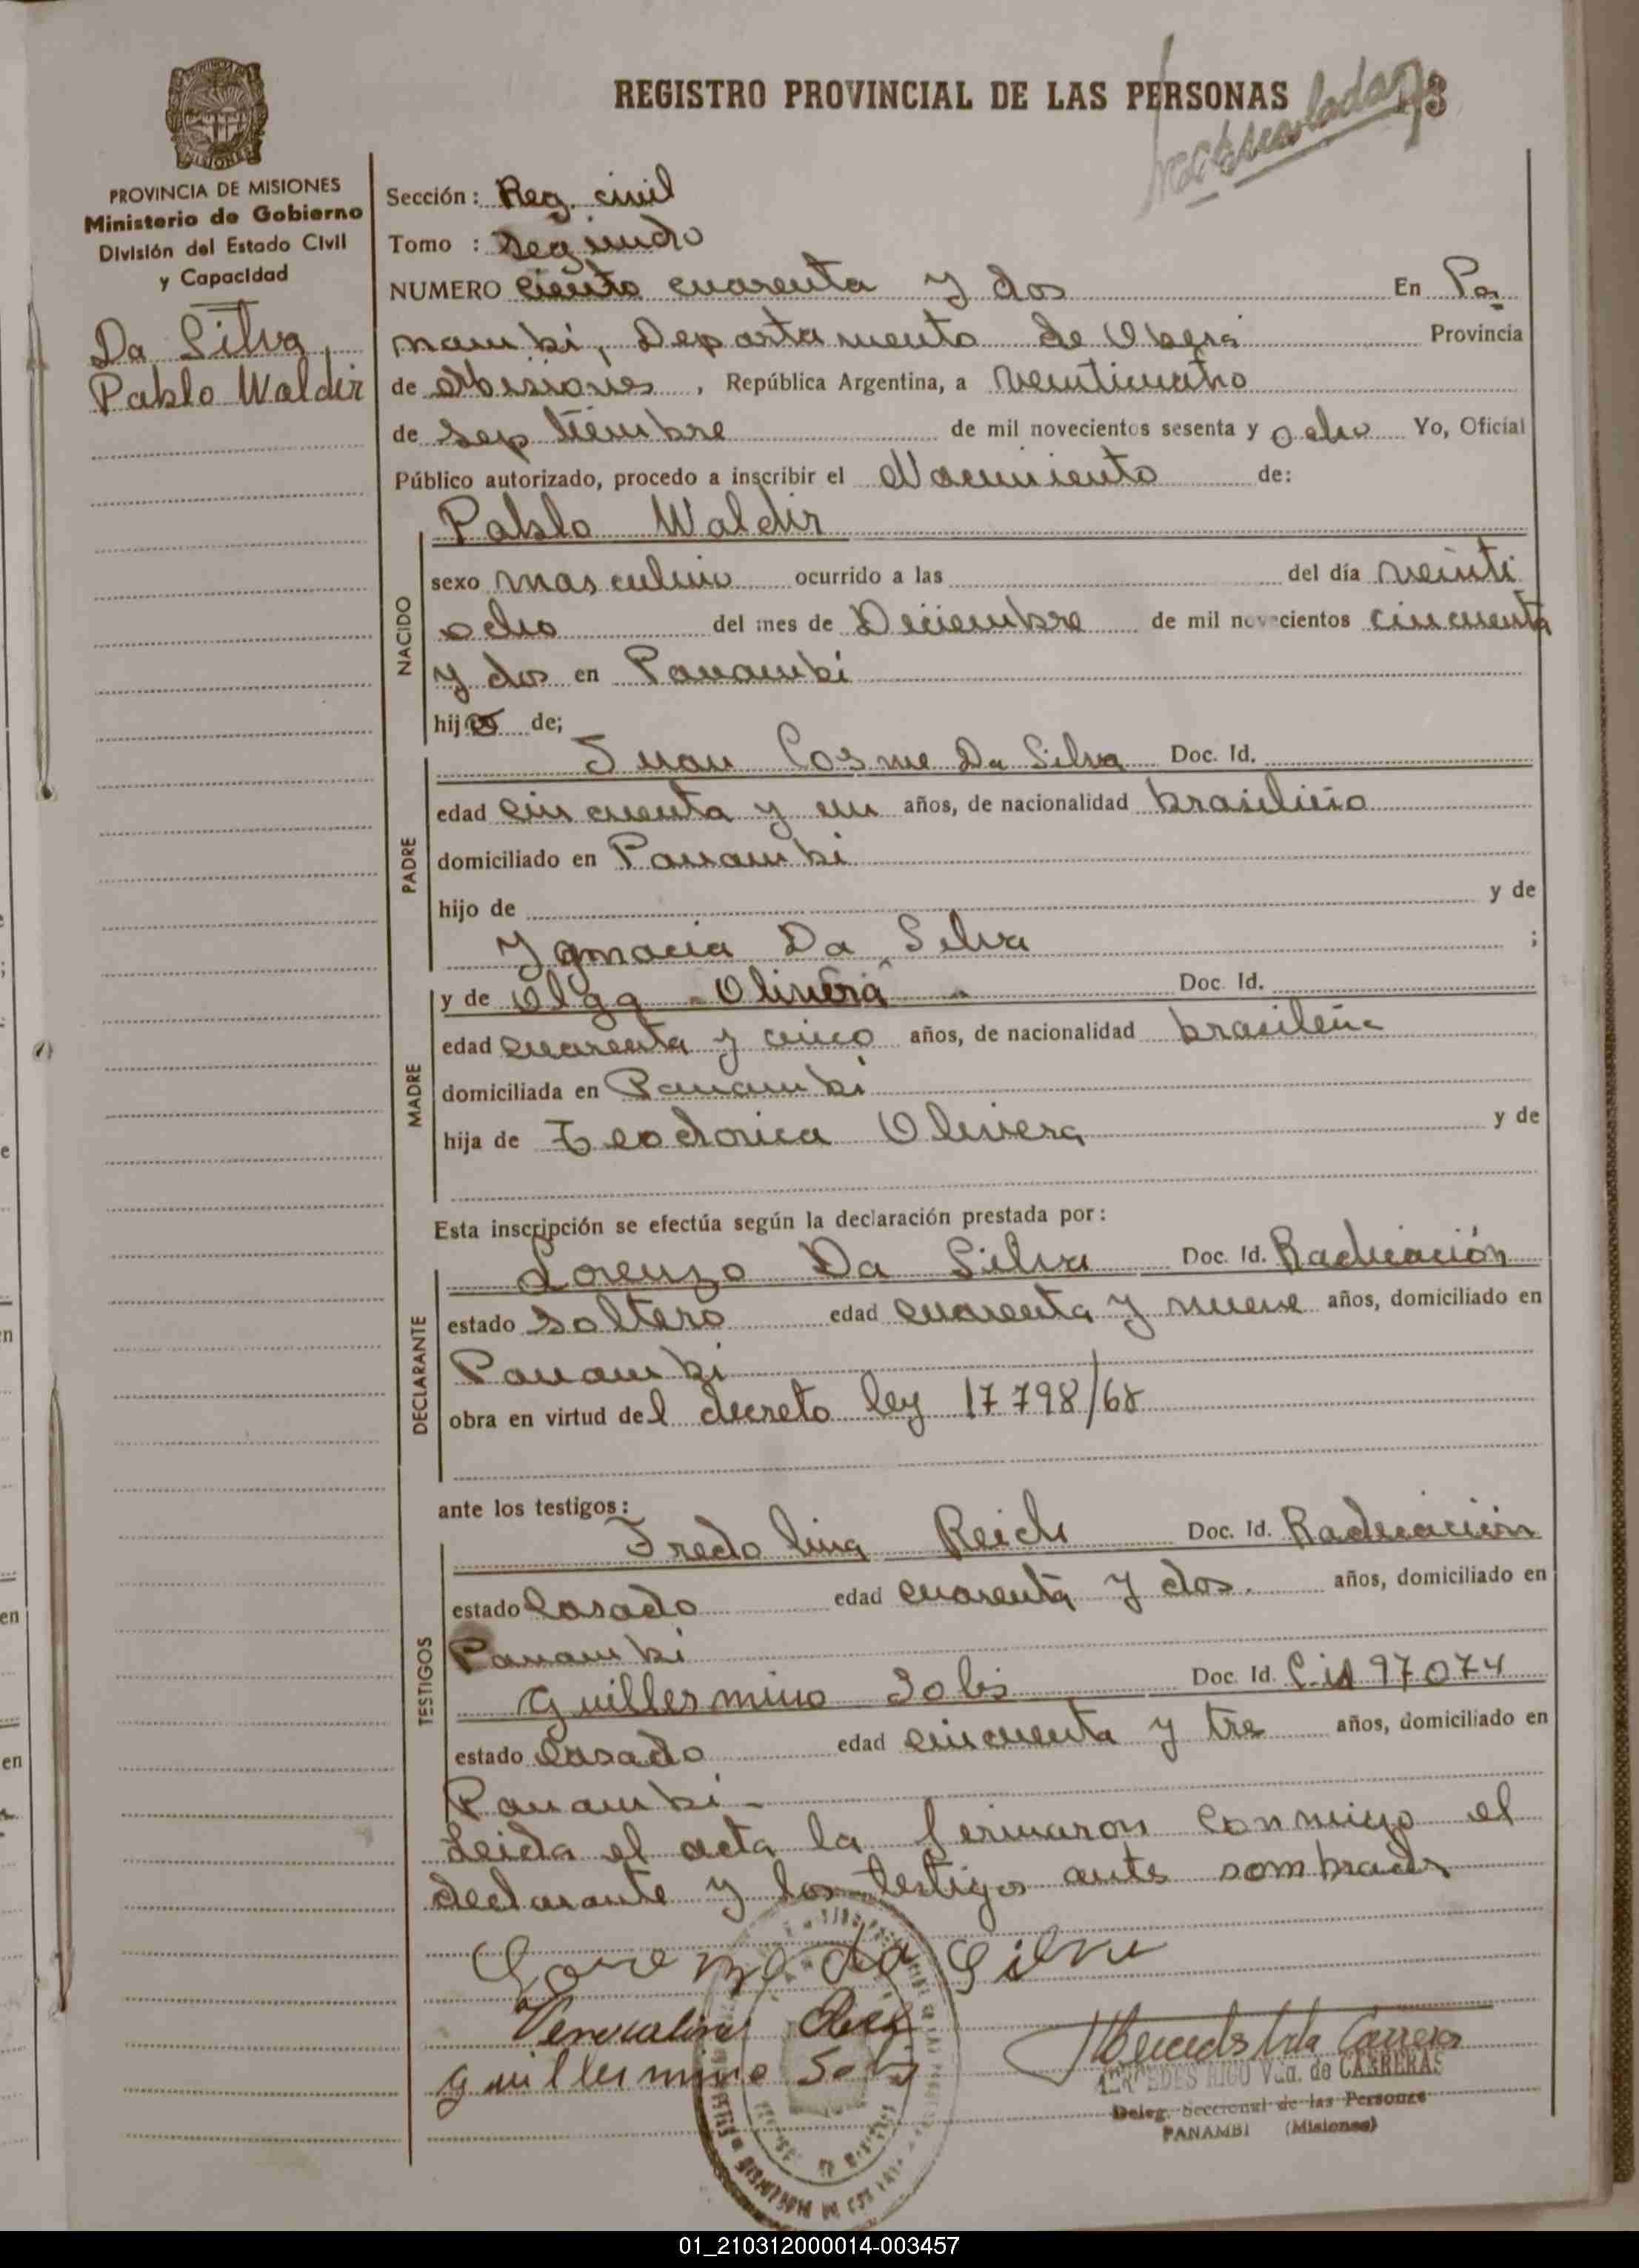 REGISTRO PROVINCIAL DE LAS PERSONAS
PROVINCIA DE MISIONES
Ministerio de Gobierno
División del Estado Civil
y Capacidad
Da Silva,
Pablo Waldir
Sección: Reg. civil
Tomo : Segundo
NUMERO ciento cuarenta y dos En Pa
nambi, Departamento de Oberá Provincia
de Misiones, República Argentina, a veinticuatro
de septiembre de mil novecientos sesenta y ocho Yo, Oficial
Público autorizado, procedo a inscribir el Nacimiento de:
Pablo Waldir
NACIDO
sexo masculino ocurrido a las del día veinti
ocho del mes de Deciembre de mil novecientos cincuenta
y dos en Panambi
hijo de;
PADRE
Juan Cosme Da Silva Doc. Id.
edad cincuenta y un años, de nacionalidad brasilero
domiciliado en Panambi
hijo de y de
Ygnacia Da Silva ;
MADRE
y de Olga - Olivera - Doc. Id.
edad cuarenta y cinco años, de nacionalidad brasileña
domiciliada en Panambi
hija de Teodorica Olivera y de
Esta inscripción se efectúa según la declaración prestada por:
DECLARANTE
Lorenzo Da Silva Doc. Id. Radicación
estado Soltero edad cuarenta y nueve años, domiciliado en
Panambi
obra en virtud del decreto ley 17798/68
ante los testigos:
TESTIGOS
Fredolina Reich Doc. Id. Radicación
estado Casado edad cuarenta y dos. años, domiciliado en
Panambi
Guillermino Solis Doc. Id. C.id 97074
estado Casado edad cincuenta y tre años, domiciliado en
Panambi -
Leida el acta la fermaron conmigo el
declarante y los testigos ante sombrads
Lorenzo da Silva
Guillermino Solis
MERCEDES RIGO Vda. de CABRERAS
Deleg. Seccional de las Personas
PANAMBI (Misiones)
01_210312000014-003457